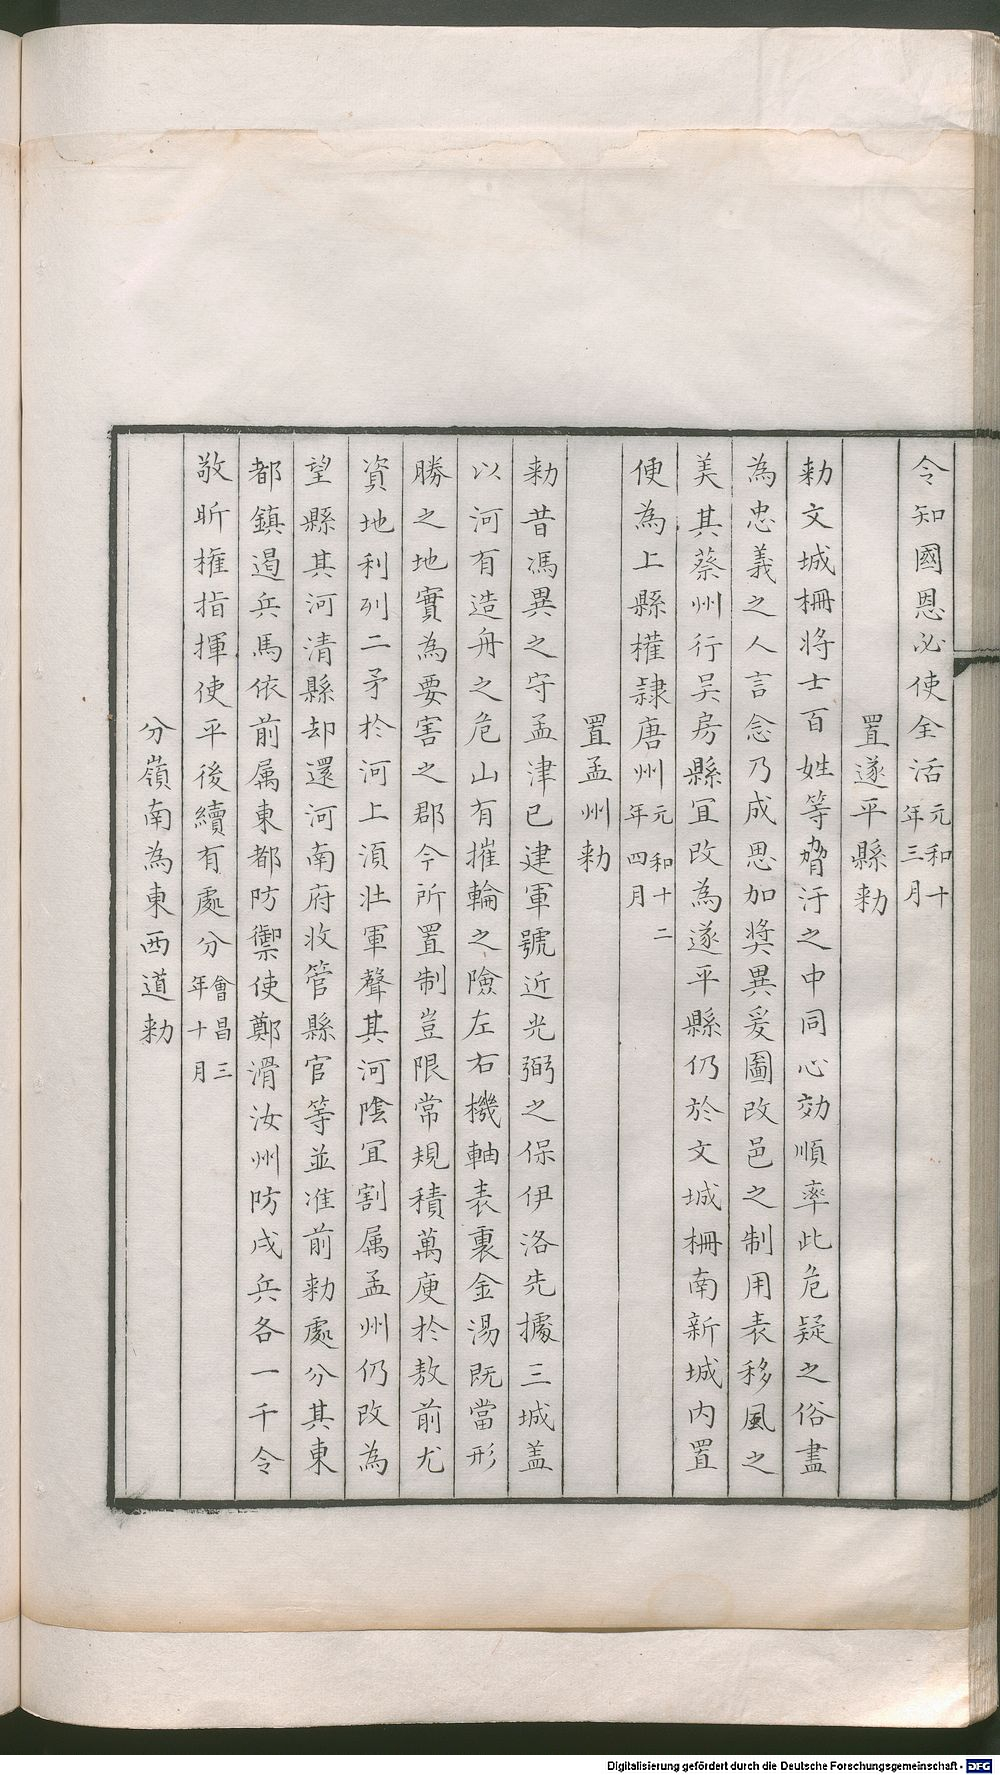 令知國恩必使全活元和十年三月
置遂平縣勑
勑文城柵將士百姓等脅汙之中同心効順率此危疑之俗盡
為忠義之人言念乃成思加奬異爰圖改邑之制用表移風之
美其蔡州行吴房縣冝改為遂平縣仍於文城柵南新城内置
便為上縣權隷唐州元和十二年四月
置孟州勑
勑昔馮異之守孟津已建軍號近光弼之保伊洛先據三城盖
以河有造舟之危山有摧輪之險左右機軸表裏金湯既當形
勝之地實為要害之郡今所置制豈限常規積萬庾於敖前尤
資地利列二矛於河上湏壯軍聲其河陰冝割属孟州仍改為
望縣其河清縣却還河南府收管縣官等並准前勑處分其東
都鎮遏兵馬依前属東都防禦使鄭滑汝州防戍兵各一千令
敬昕權指揮使平後續有處分會昌三年十月
分嶺南為東西道勑
Digitalisierung gefördert durch die Deutsche Forschungsgemeinschaft - DFG